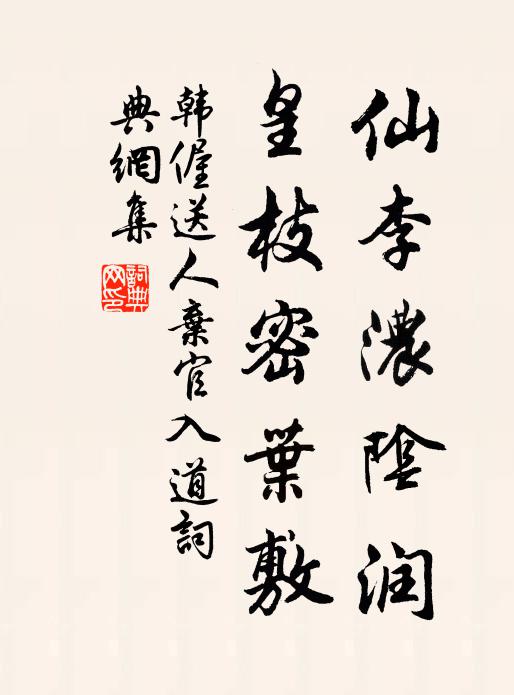 仙李濃陰润
皇枝密葉敷
韩偓送人棄官入道詞
典網集
詞典網印